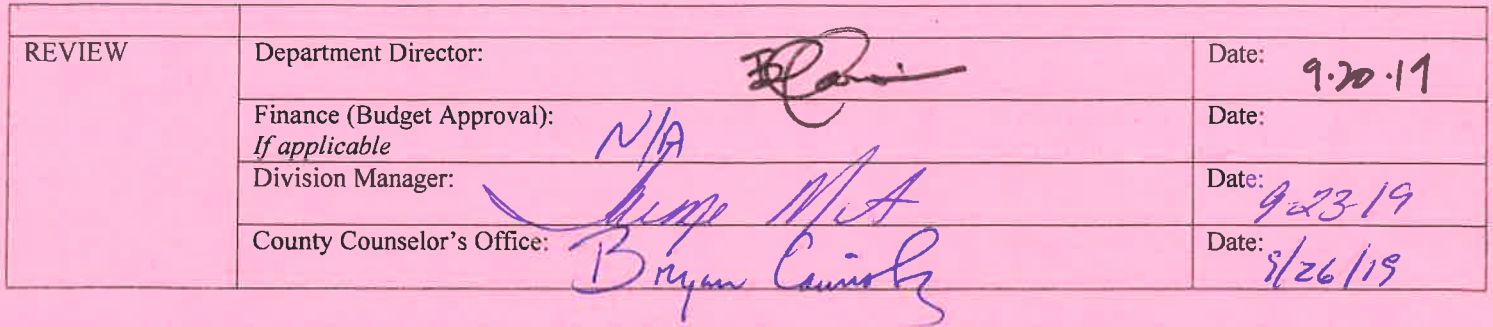 REVIEW
Department Director:
Date: 9.20.19
Finance (Budget Approval): N/A
If applicable
Date:
Division Manager:
Date: 9-23-19
County Counselor's Office: Bryan
Date: 9/26/19